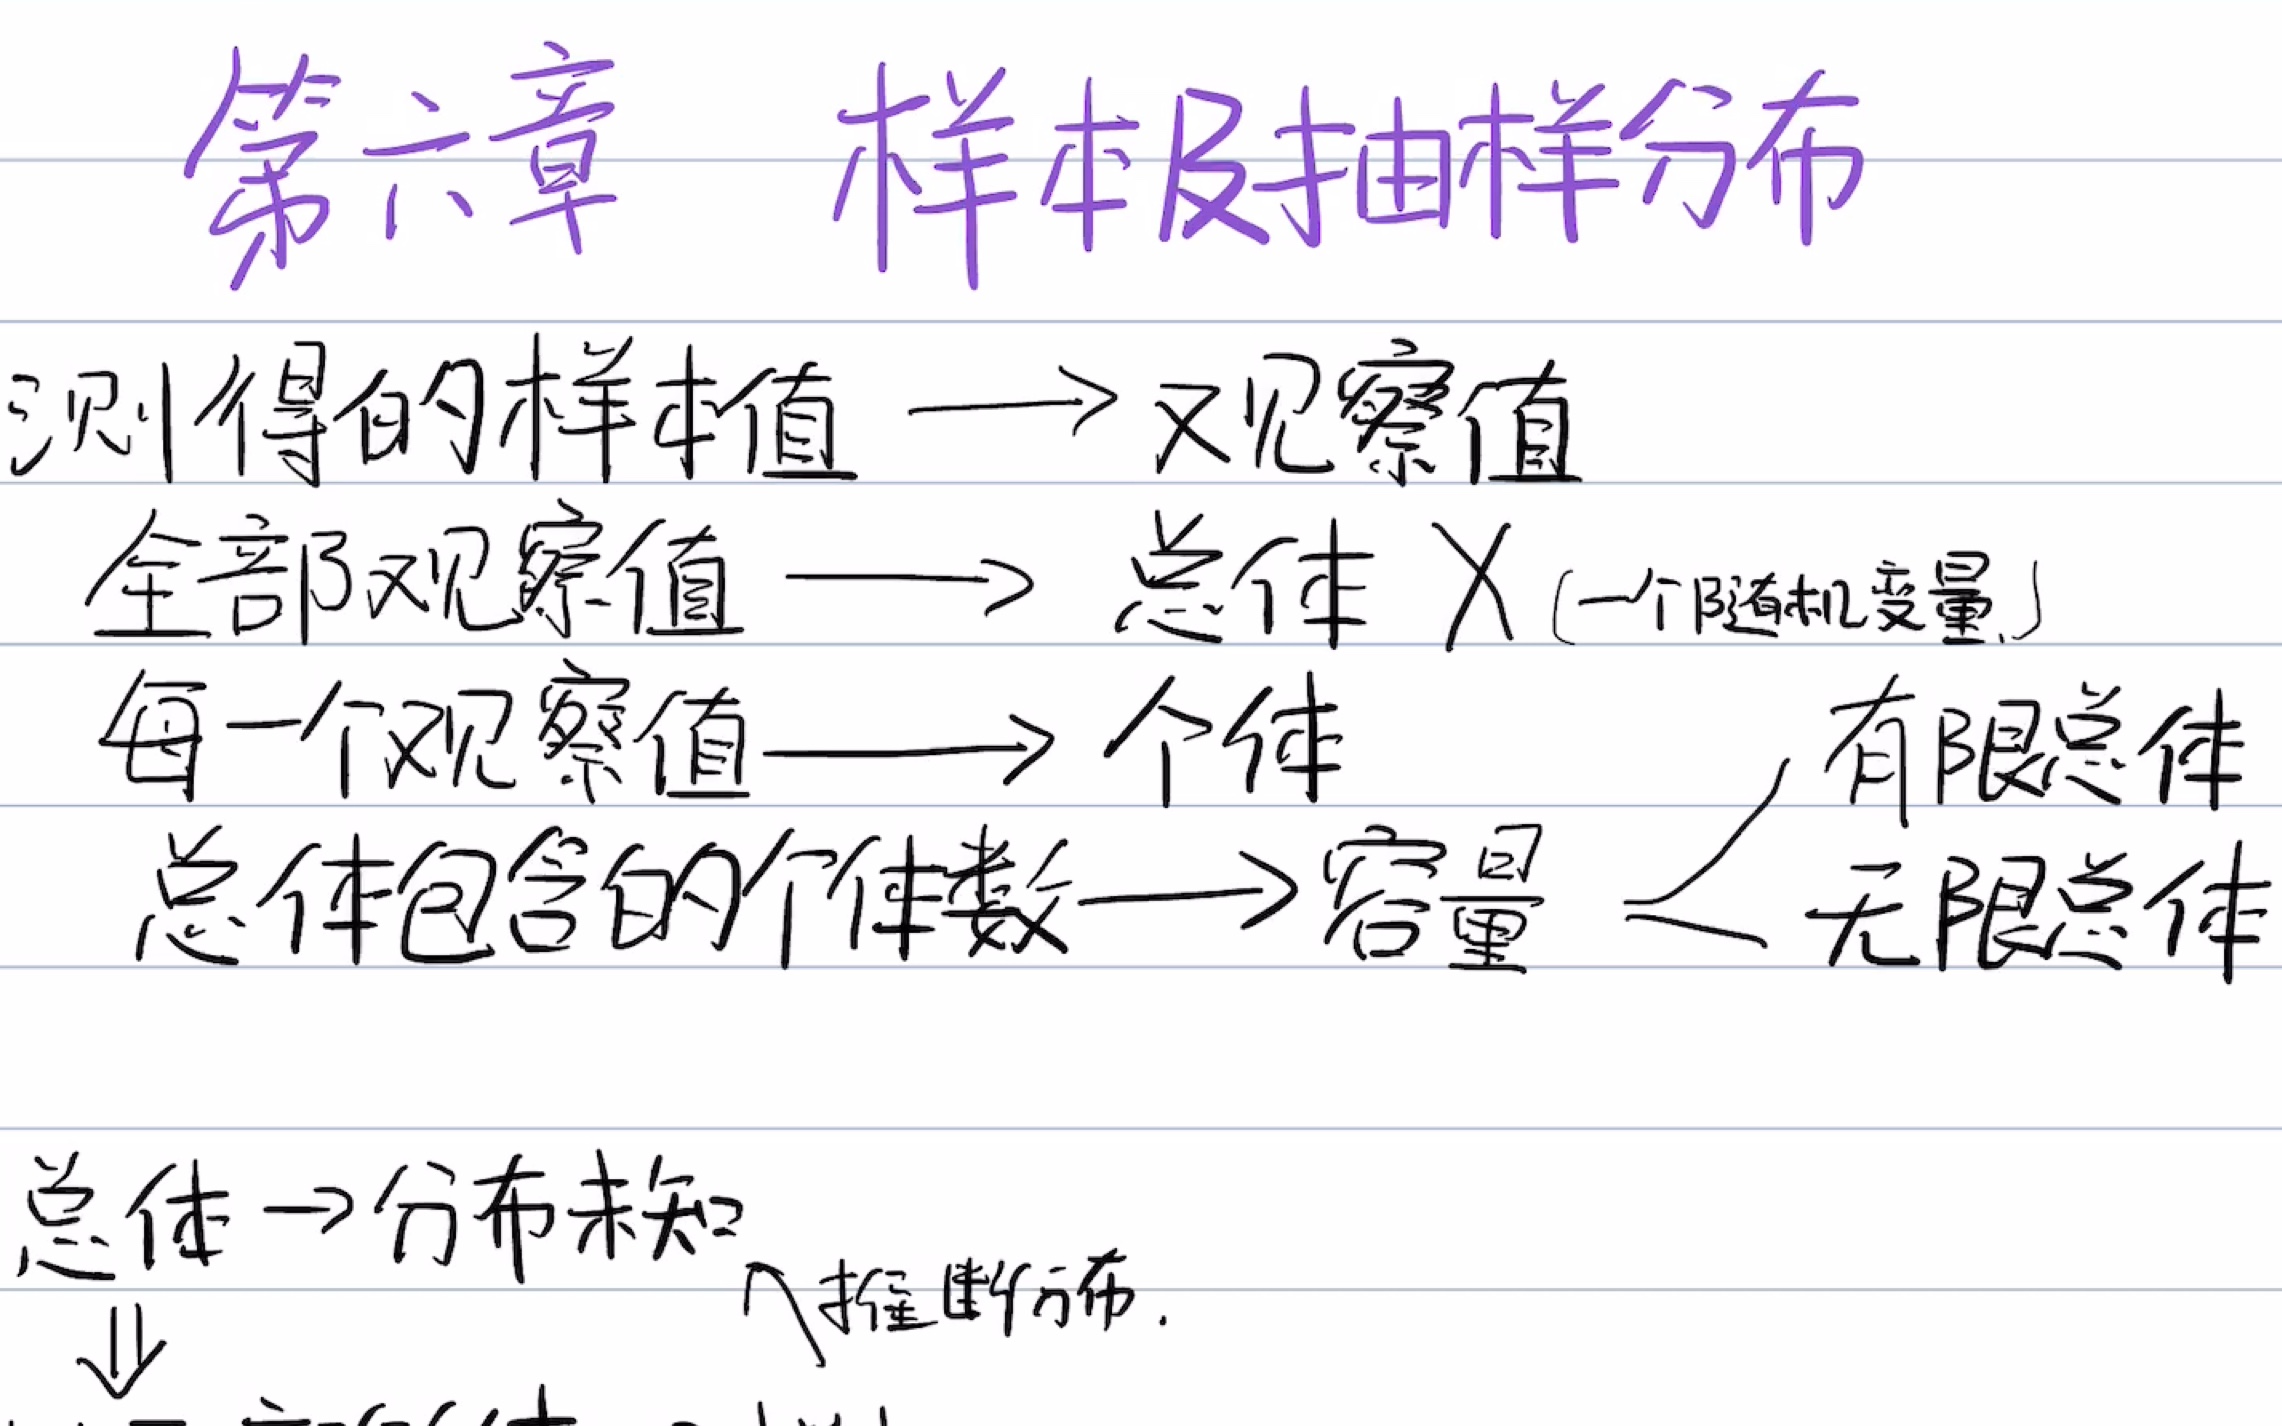 第六章 样本及抽样分布
测得的样本值 → 观察值
全部观察值 → 总体 X (一个随机变量)
每一个观察值 → 个体
有限总体
总体包含的个体数 → 容量
无限总体
总体 → 分布未知
推断分布.